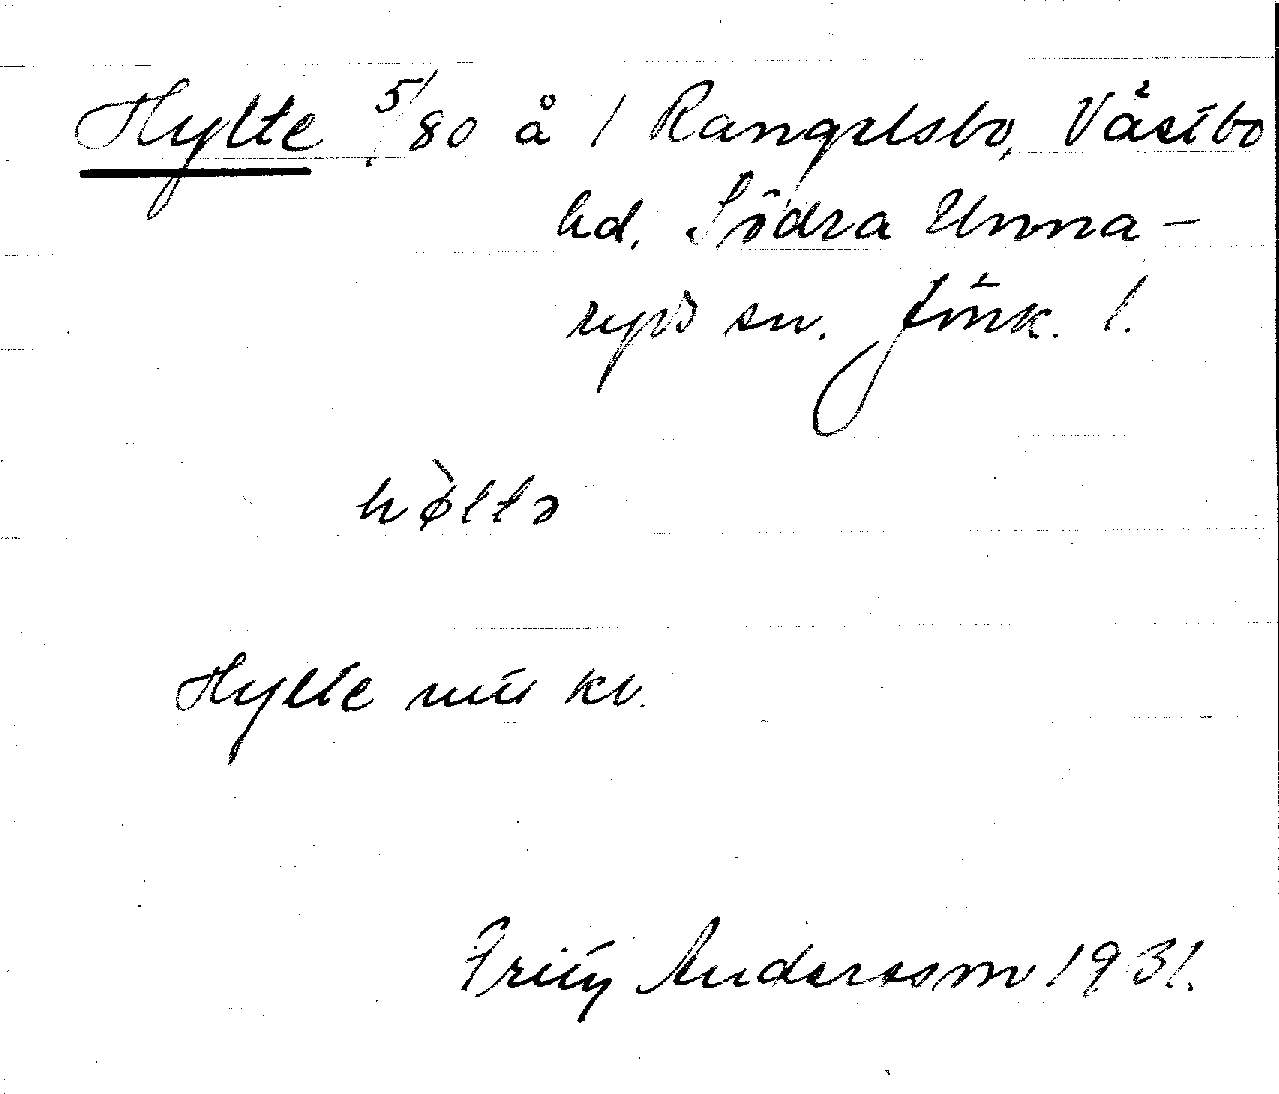 Hylte 5/80 å 1 Rangelsbo, Västbo
hd. Södra Unna-
ryds sn. Jönk. l.
hø̀ltə
Hylte
kv.
Fritz Andersson 1931.